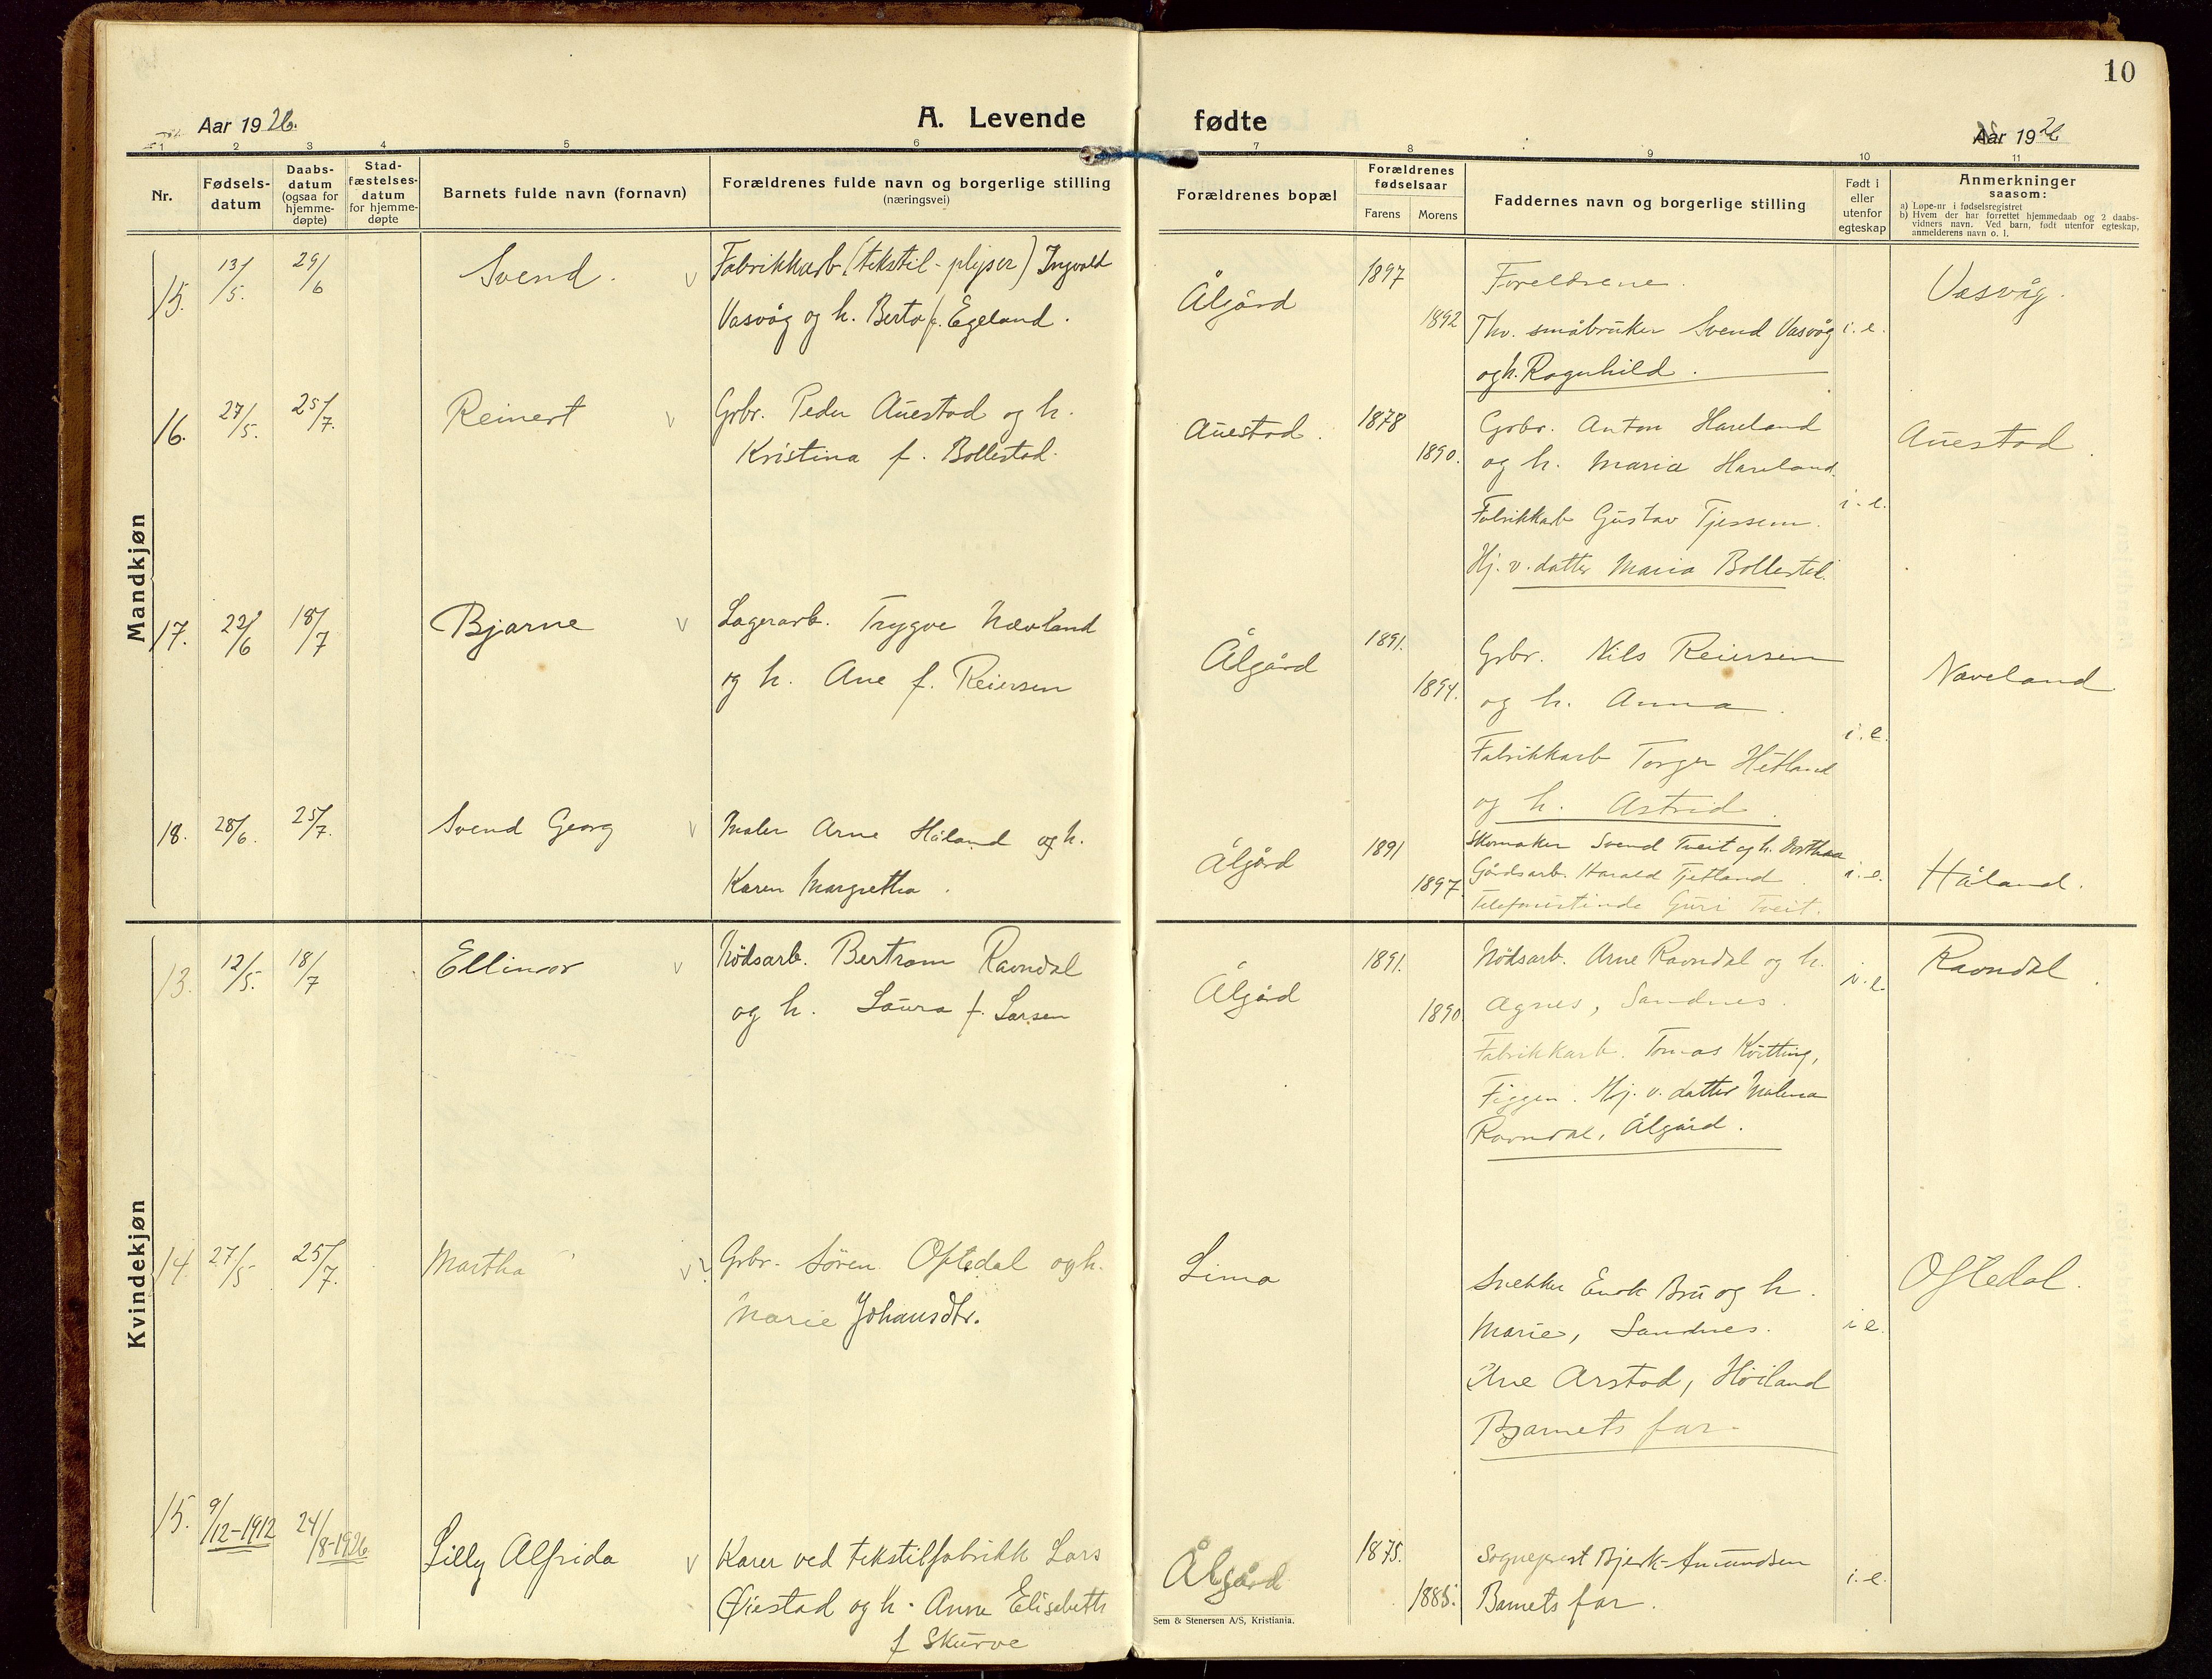 10
Aar 1926.
A. Levende
fødte
Aar 1926
1 2 3 4 5 6 7 8 9 10 11
Nr.
Fødsels-
datum
Daabs-
datum
(ogsaa for
hjemme-
døpte)
Stad-
fæstelses-
datum
for hjemme-
døpte
Barnets fulde navn (fornavn)
Forældrenes fulde navn og borgerlige stilling
(næringsvei)
Forældrenes bopæl
Forældrenes
fødselsaar
Farens Morens
Faddernes navn og borgerlige stilling
Født i
eller
utenfor
egteskap
Anmerkninger
saasom:
a) Løpe-nr i fødselsregistret
b) Hvem der har forrettet hjemmedaab og 2 daabs-
vidners navn. Ved barn, født utenfor egteskap,
anmelderens navn o. l.
Mandkjøn
15. 13/5. 29/6 Svend. v Fabrikkarb (tekstil-plyser) Ingvald
Vasvåg og h. Berta f. Egeland.
Ålgård 1897 1892
Foreldrene.
Thv. småbruker Svend Vasvåg
og h. Ragnhild.
i. e. Vasvåg.
16. 27/5. 25/7. Reinert v Grbr. Peder Auestad og h.
Kristina f. Bollestad.
Auestad. 1878 1890.
Grbr. Anton Haveland
og h. Maria Haveland.
Fabrikkarb Gustav Tjessem.
Hj. v. datter Maria Bollestd.
i. e. Auestad.
17. 22/6 18/7 Bjarne v Lagerarb. Trygve Nævland
og h. Ane f. Reiersen
Ålgård 1891. 1894.
Grbr. Nils Reiersen
og h. Anna.
Fabrikkarb Torger Hetland
og h. Astrid.
i. e. Naveland
18. 28/6. 25/7. Svend Georg v Maler Arne Håland og h.
Karen Margretha.
Ålgård 1891 1897.
Skomaker Svend Tveit og h. Dorthea
Gårdsarb. Harald Tjetland
Telefonistinde Guri Tveit.
i. e. Håland.
Kvindekjøn
13. 12/5. 18/7 Ellinor v Nödsarb. Bertram Ravndal
og h. Laura f. Larsen
Ålgård 1891. 1890
Nödsarb. Arne Ravndal og h.
Agnes, Sandnes.
Fabrikkarb. Tomas Kvitting,
Figgen. Hj. v. datter Malena
Ravndal, Ålgård.
i. e. Ravndal.
14 27/5 25/7. Martha v Grbr. Sören Oftedal og h.
Marie Johansdtr.
Lima
Snekker Enok Bru og h.
Marie, Sandnes.
Ane Arstad, Höiland
Barnets far.
i e. Oftedal.
15. 9/12-1912 24/8-1926 Lilly Alfrida v Karer ved tekstilfabrikk Lars
Øiestad og h. Anne Elisabeth
f Skurve
Ålgård 1875. 1885.
Sogneprest Bjerk-Amundsen
Barnets far.
i. e.
Sem & Stenersen A/S, Kristiania.